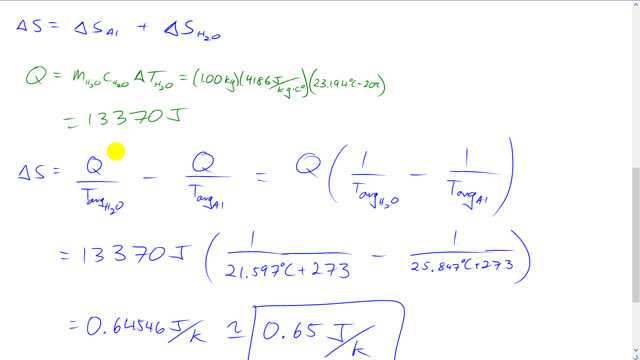 ΔS = ΔS_Al + ΔS_H₂O
Q = m_H₂O C_H₂O ΔT_H₂O = (1.00 kg)(4186 J/kg·C°)(23.194°C - 20°C)
= 13370 J
ΔS = Q/T_avg H₂O - Q/T_avg Al = Q (1/T_avg H₂O - 1/T_avg Al)
= 13370 J (1/21.597°C + 273 - 1/25.847°C + 273)
= 0.64546 J/K ≃ 0.65 J/K